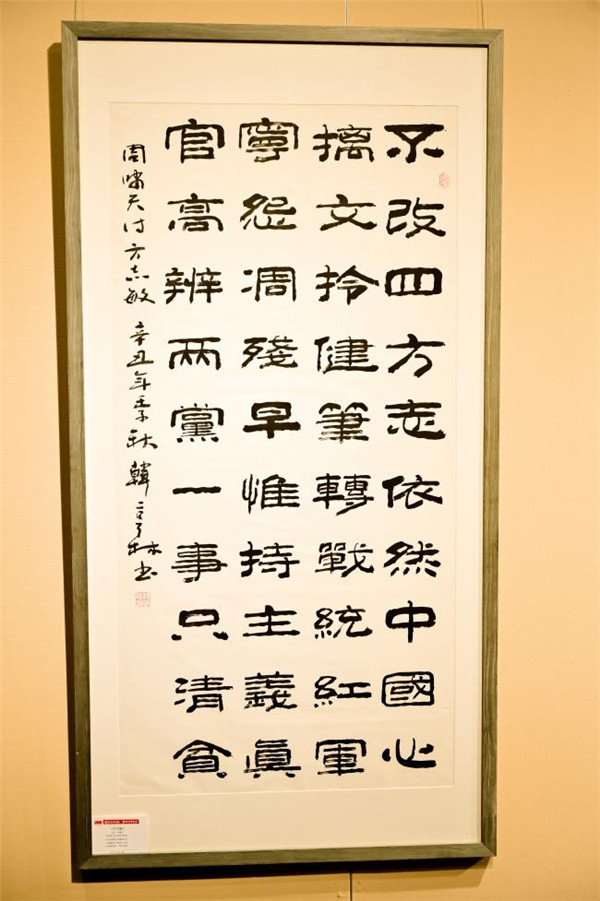 不改四方志依然中國心
摛文拎健筆轉戰統紅軍
寧怨凋殘早惟持主義真
官高辨兩黨一事只清貧
周嘯天诗方志敏 辛丑年孟秋 韓亨林书